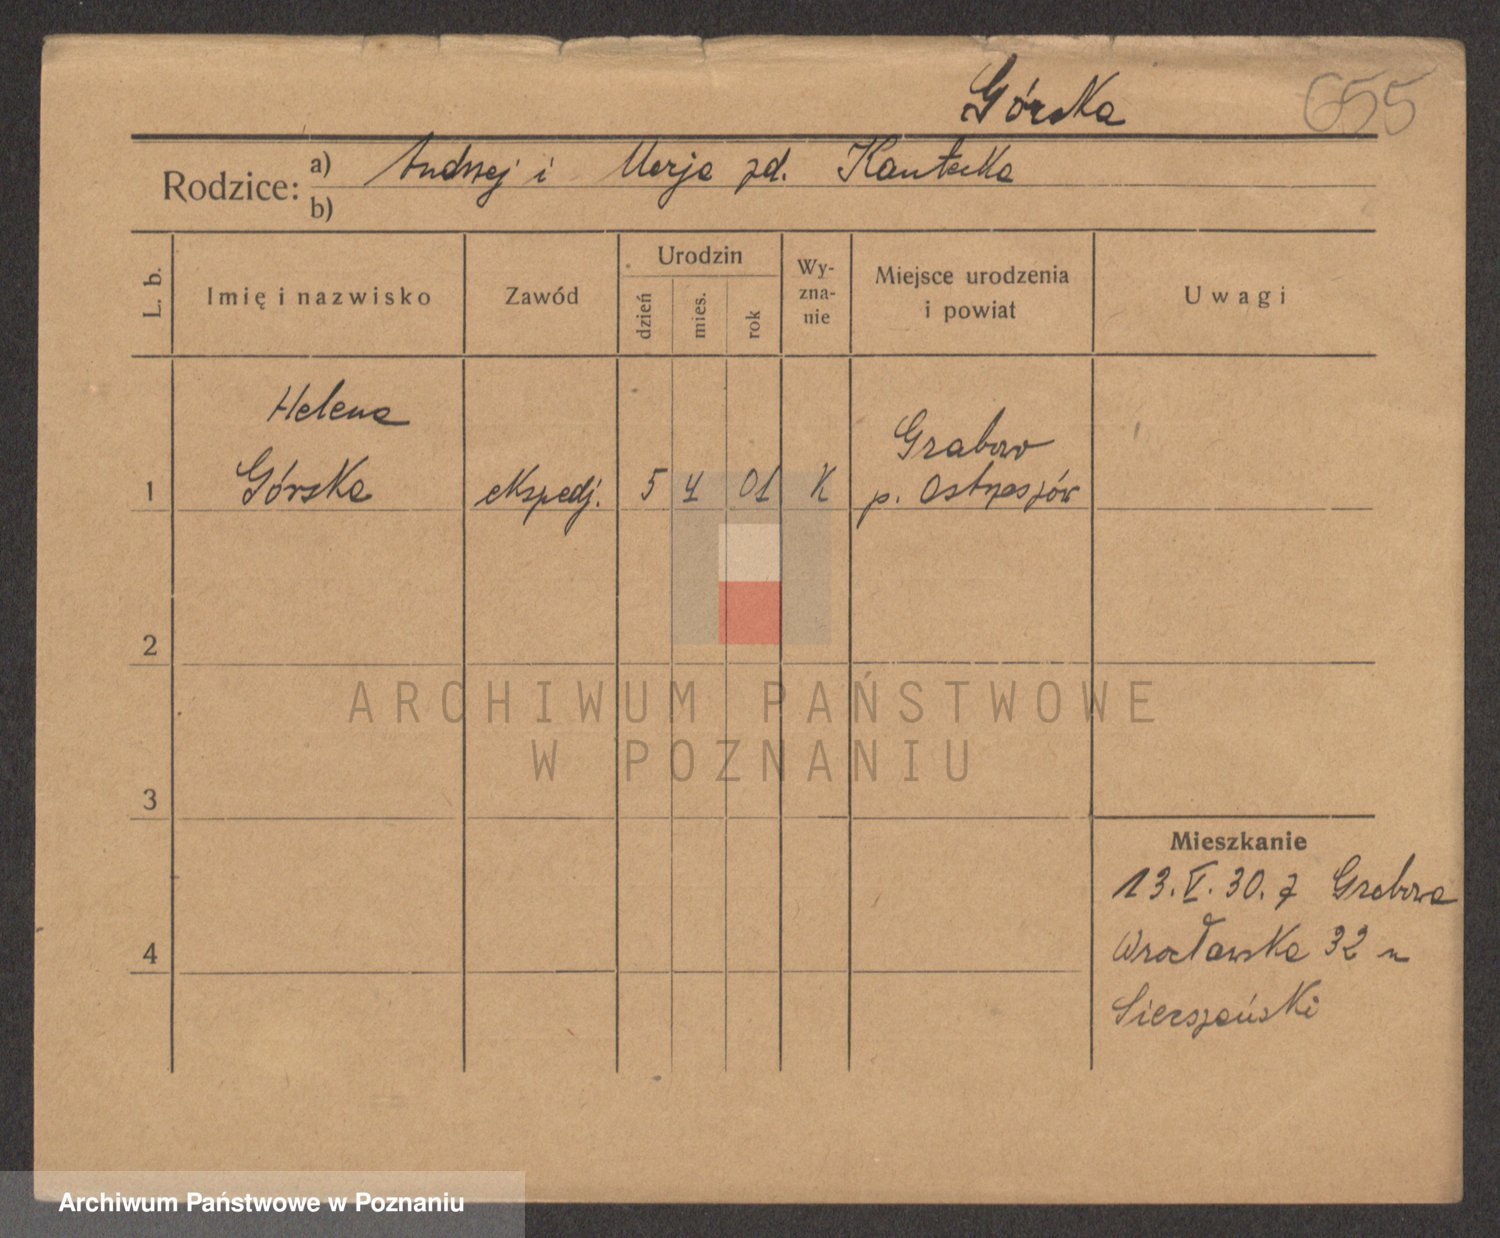 Górska 655
Rodzice: a) Andrzej i Marja zd. Kantecka
b)
L. b.
Imię i nazwisko
Zawód
Urodzin
dzień
mies.
rok
Wy-
zna-
nie
Miejsce urodzenia
i powiat
Uwagi
Helena
Grabow
1 Górska ekspedj. 5 4 01 K p. Ostrzeszów
2
ARCHIWUM PAŃSTWOWE
W POZNANIU
3
Mieszkanie
13. V. 30. z Grabowa
4 Wrocławska 32 u
Archiwum Państwowe w Poznaniu